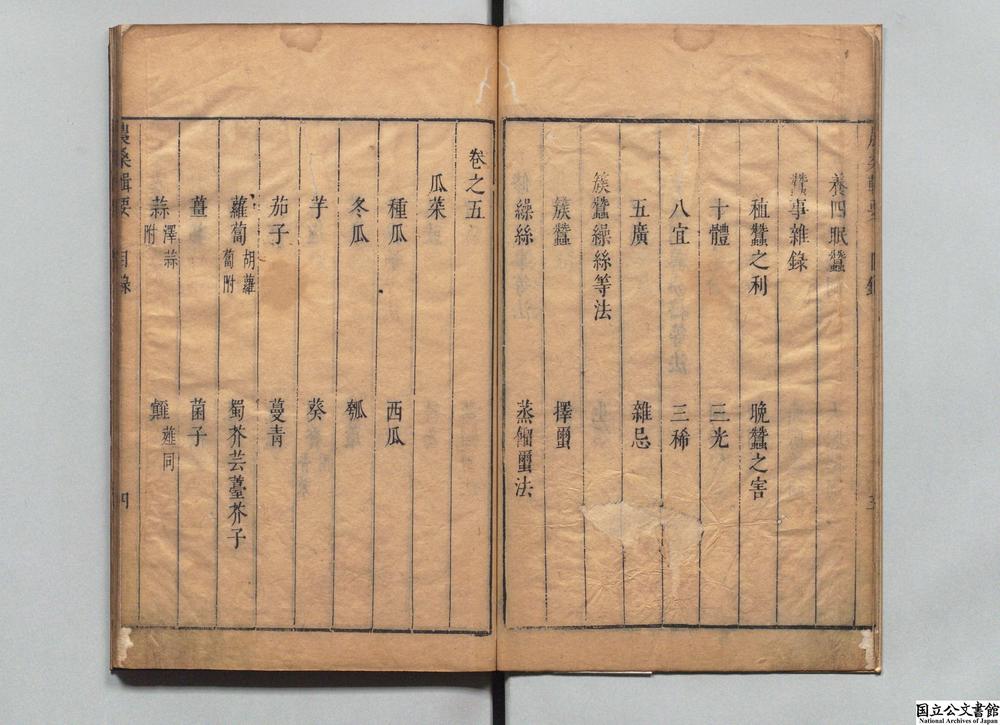 養四眠蠶
蠶事雜錄
植蠶之利 晚蠶之害
十體 三光
八宜 三稀
五廣 雜忌
簇蠶繰絲等法
簇蠶 擇璽
繰絲 蒸餾璽法
卷之五
瓜菜
種瓜 西瓜
冬瓜 瓠
芋 葵
茄子 蔓青
蘿蔔 胡蘿蔔附 蜀芥芸薹芥子
薑 菌子
蒜 澤蒜附 䪥 薤同
農桑輯要 目錄 四
国立公文書館
National Archives of Japan